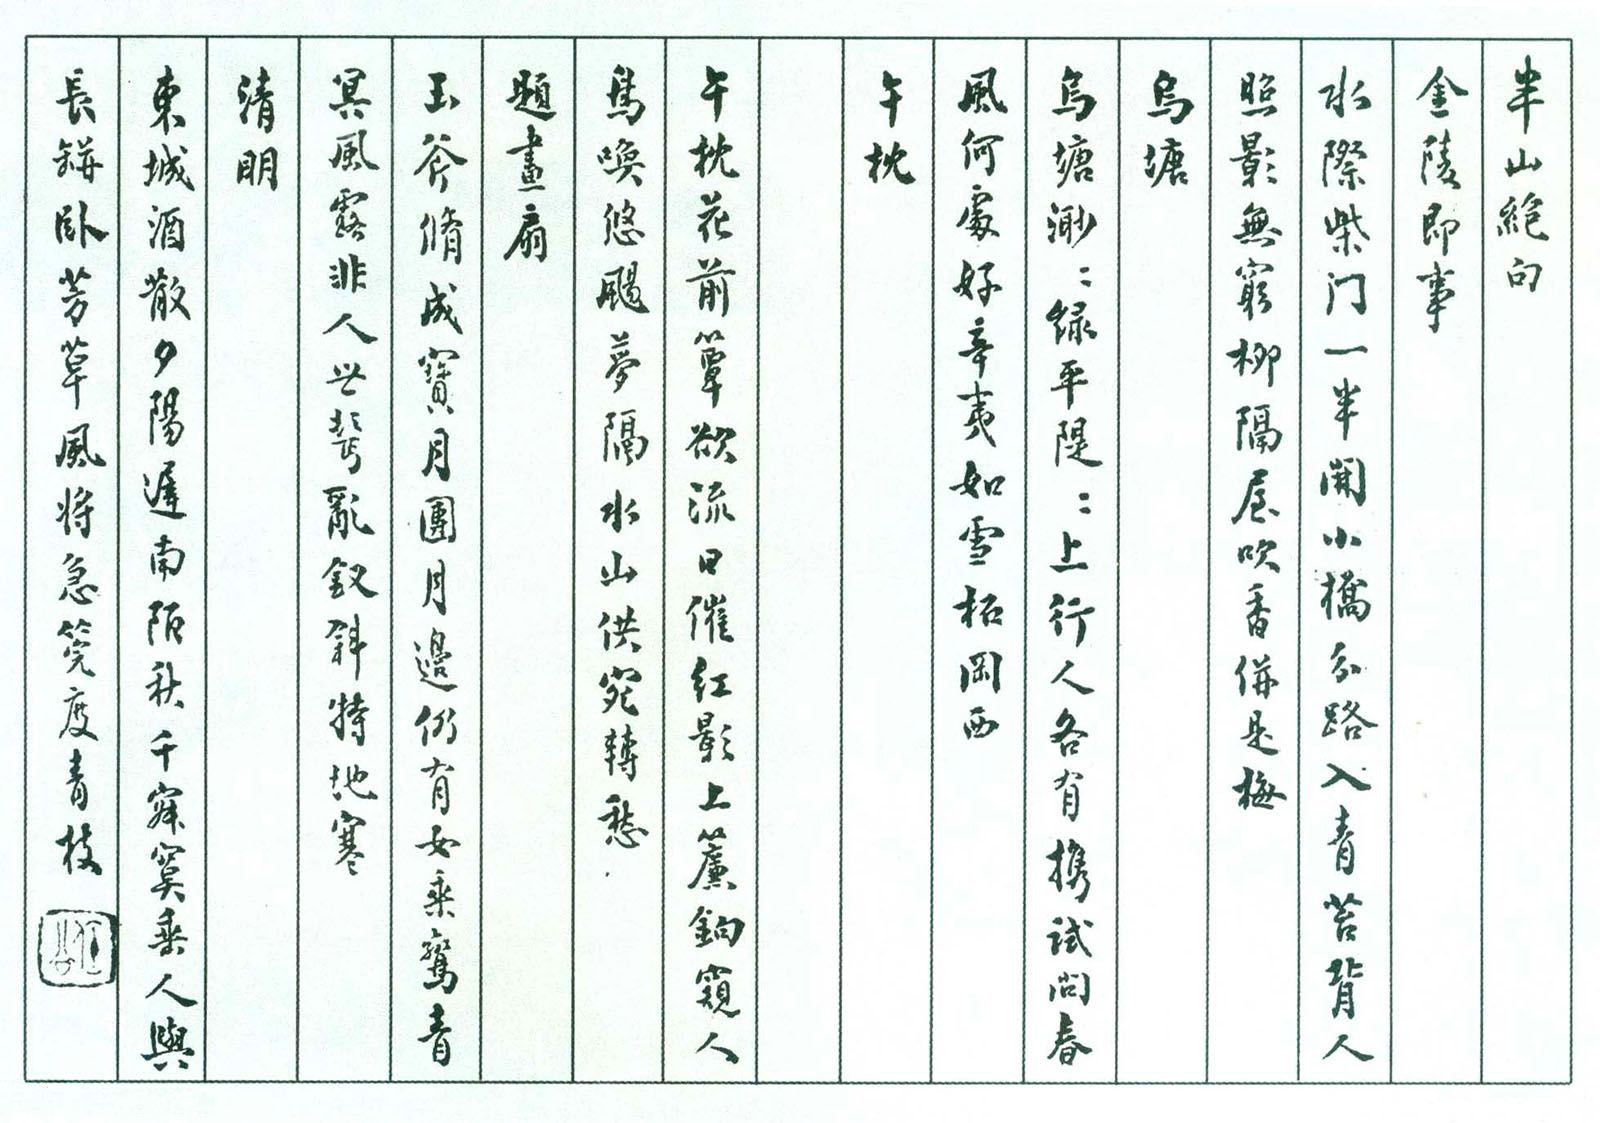 半山絕句
金陵即事
水際柴门一半開小橋分路入青苔背人
照影無窮柳隔屋吹香併是梅
烏塘
烏塘渺〻綠平隄〻上行人各有携試問春
風何處好辛夷如雪柘岡西
午枕
午枕花前簟欲流日催紅影上簾鉤窺人
鳥喚悠颺夢隔水山供宛轉愁
題畫扇
玉斧脩成寶月團月邊仍有女乘鸞青
冥風露非人世鬢亂釵斜特地寒
清明
東城酒散夕陽遲南陌秋千寂寞垂人與
長缾臥芳草風將急筦度青枝